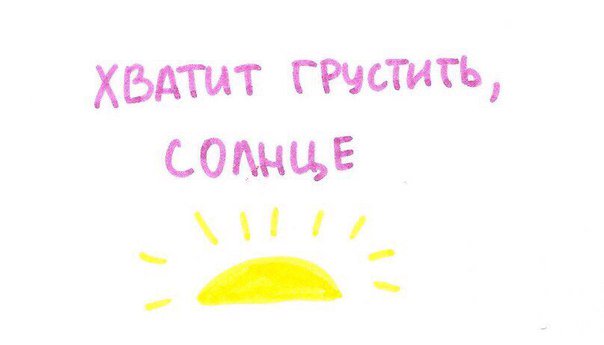 ХВАТИТ ГРУСТИТЬ,
СОЛНЦЕ